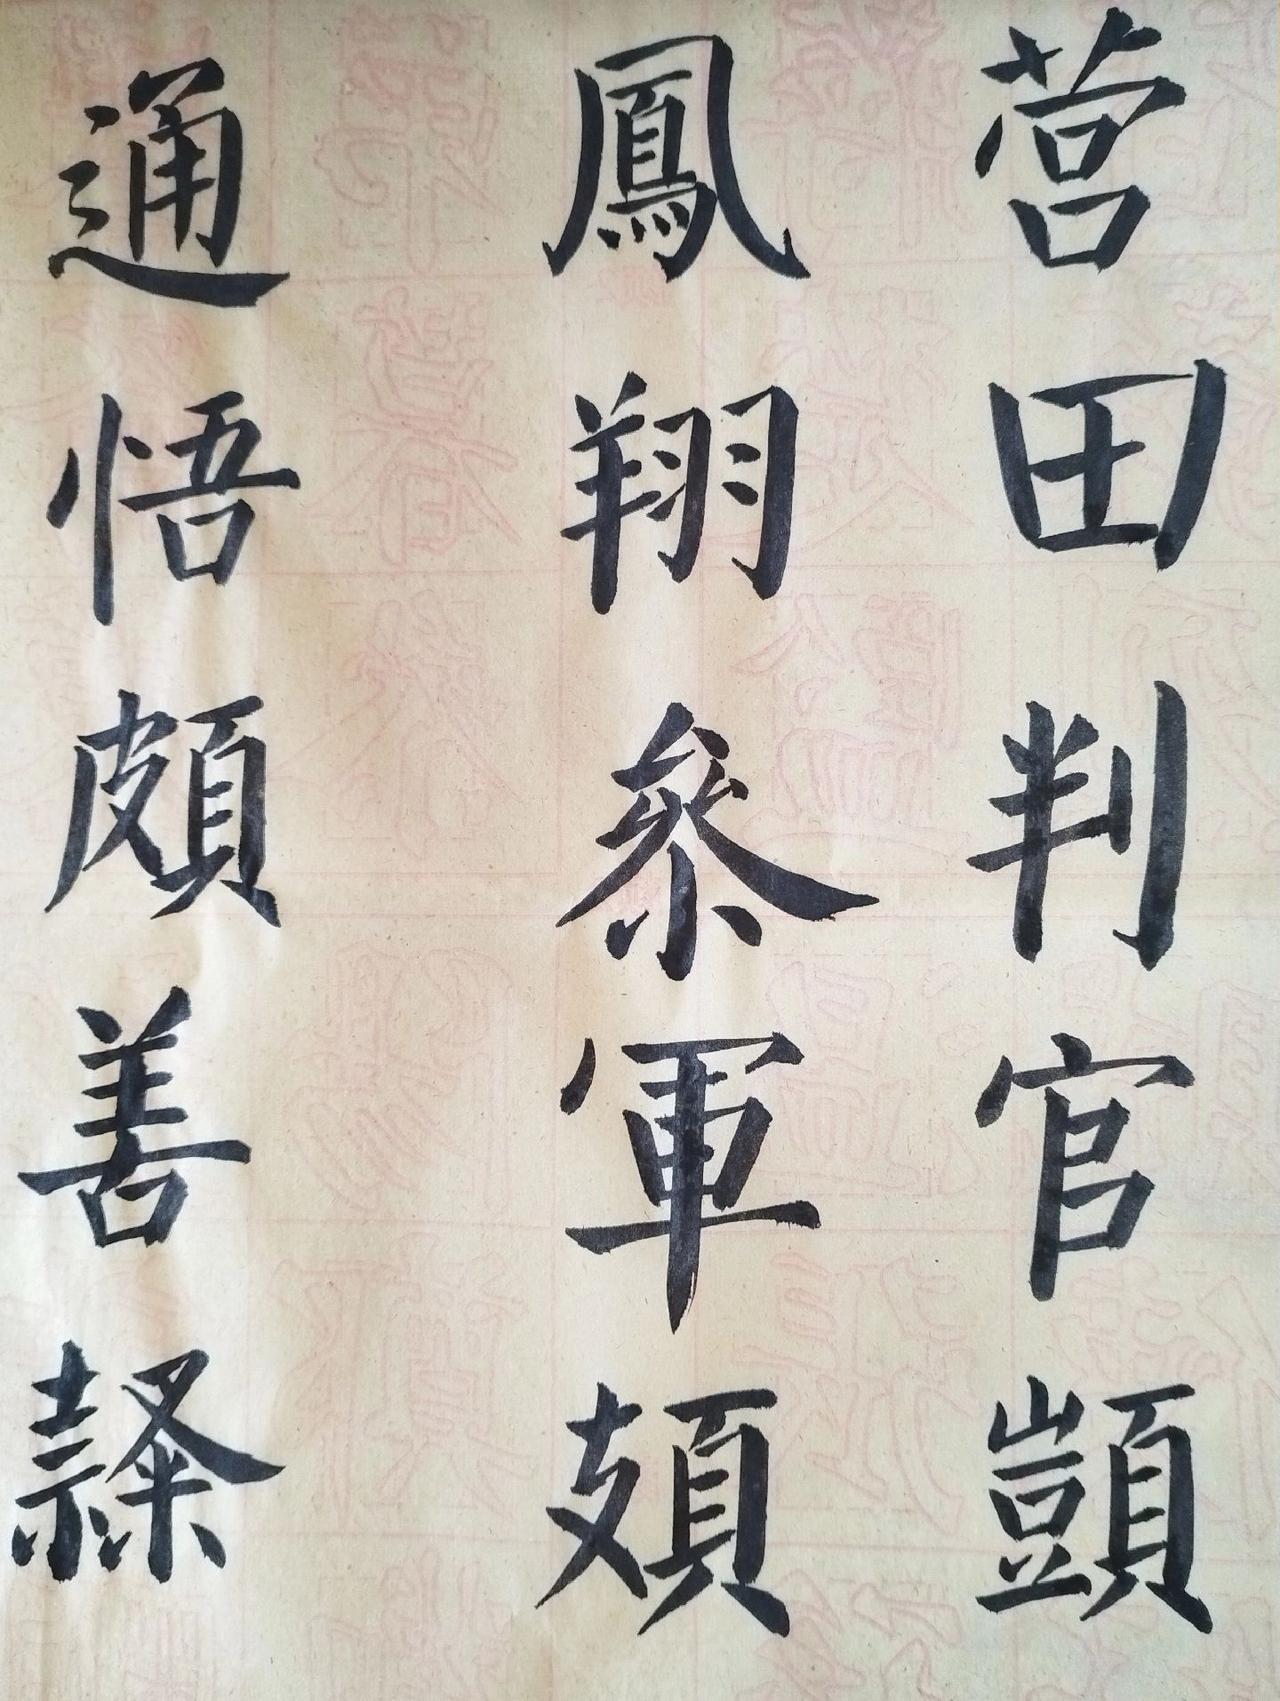 营田判官顗
鳳翔叅軍頍
通悟頗善隸